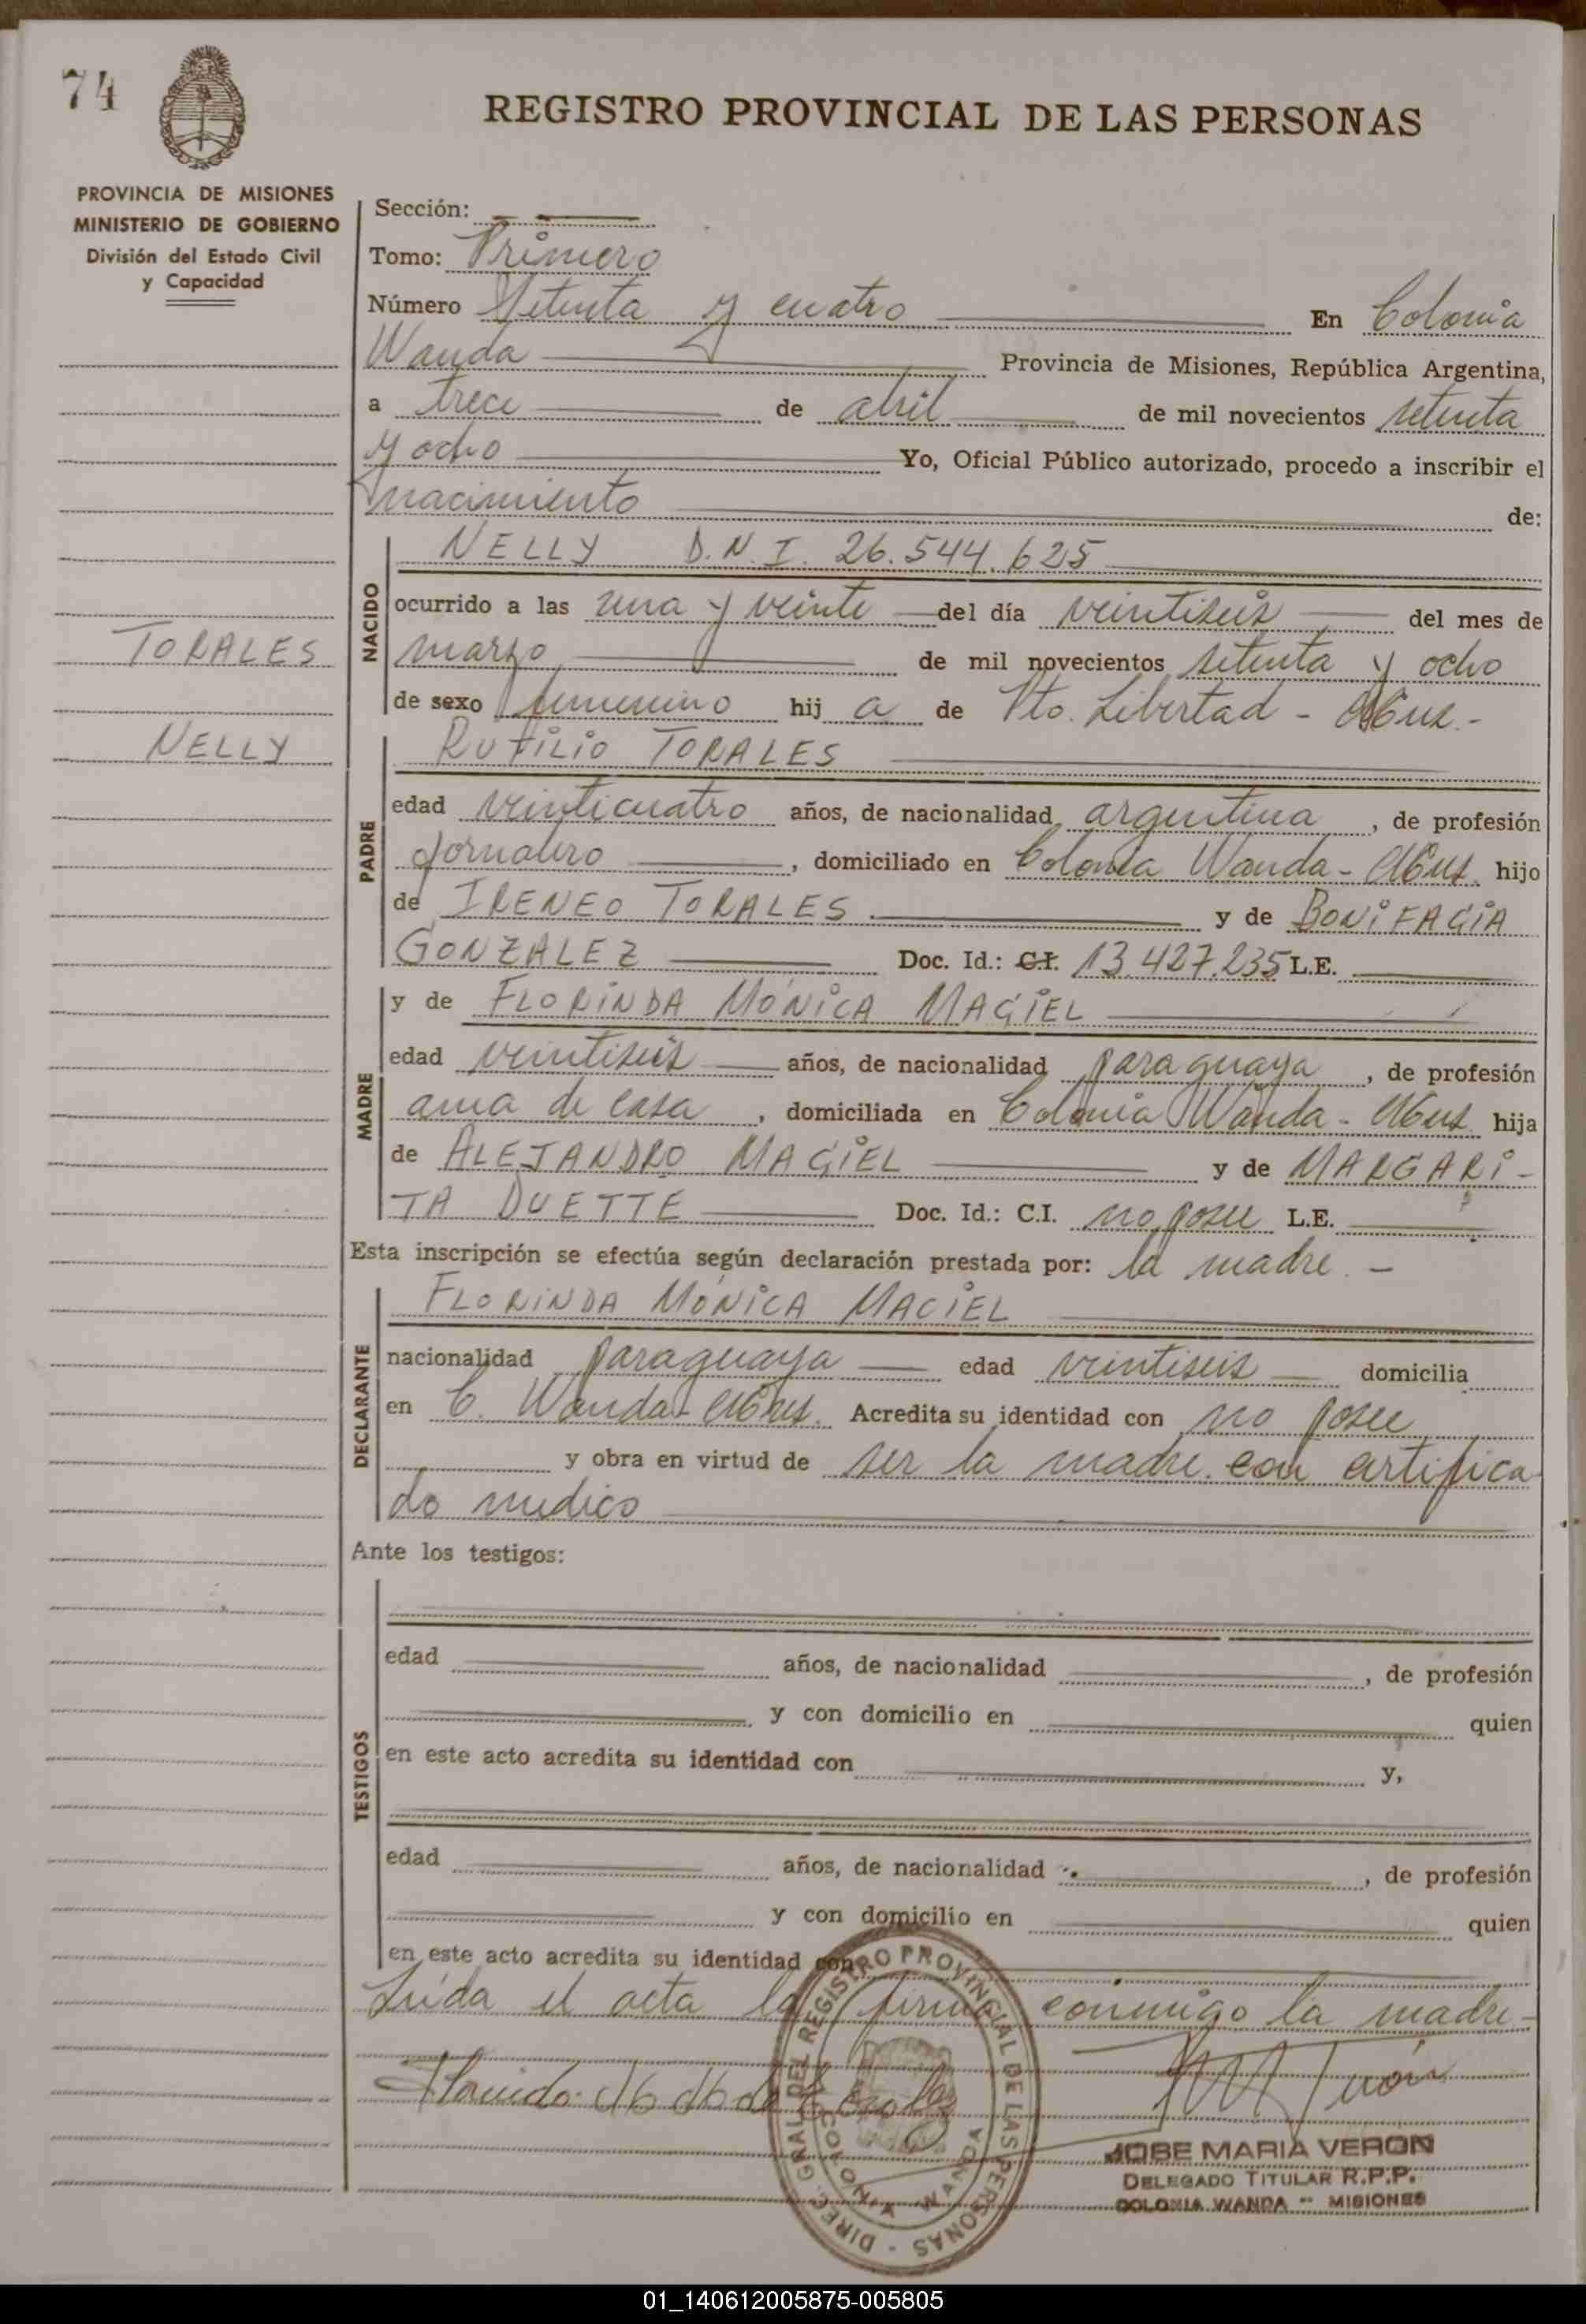 74
REGISTRO PROVINCIAL DE LAS PERSONAS
PROVINCIA DE MISIONES
MINISTERIO DE GOBIERNO
División del Estado Civil
y Capacidad
TORALES
NELLY
Sección:
Tomo: Primero
Número Setenta y cuatro En Colonia
Wanda Provincia de Misiones, República Argentina,
a trece de abril de mil novecientos setenta
y ocho Yo, Oficial Público autorizado, procedo a inscribir el
nacimiento de:
NACIDO
NELLY D.N.I. 26.544.625
ocurrido a las una y veinte del día veintiseis del mes de
marzo de mil novecientos setenta y ocho
de sexo femenino hij a de Pto. Libertad - Mnes.-
PADRE
RUTILIO TORALES
edad veinticuatro años, de nacionalidad argentina, de profesión
Jornalero, domiciliado en Colonia Wanda - Mnes. hijo
de IRENEO TORALES y de BONIFACIA
GONZALEZ Doc. Id.: C.I. 13.427.235 L.E.
MADRE
y de FLORINDA MÓNICA MACIEL
edad veintiseis años, de nacionalidad paraguaya, de profesión
ama de casa, domiciliada en Colonia Wanda - Mnes. hija
de ALEJANDRO MACIEL y de MARGARI-
TA DUETTE Doc. Id.: C.I. no posee L.E.
Esta inscripción se efectúa según declaración prestada por: la madre.-
DECLARANTE
FLORINDA MÓNICA MACIEL
nacionalidad paraguaya edad veintiseis domicilia
en C. Wanda - Mnes. Acredita su identidad con no posee
y obra en virtud de ser la madre con certifica
do medico
Ante los testigos:
TESTIGOS
edad años, de nacionalidad, de profesión
y con domicilio en quien
en este acto acredita su identidad con y,
edad años, de nacionalidad, de profesión
y con domicilio en quien
en este acto acredita su identidad con
Leída el acta la firma conmigo la madre-
DIREC. GRAL DEL REGISTRO PROVINCIAL DE LAS PERSONAS
COLONIA WANDA
JOSE MARIA VERON
DELEGADO TITULAR R.P.P.
COLONIA WANDA - MISIONES
01_140612005875-005805